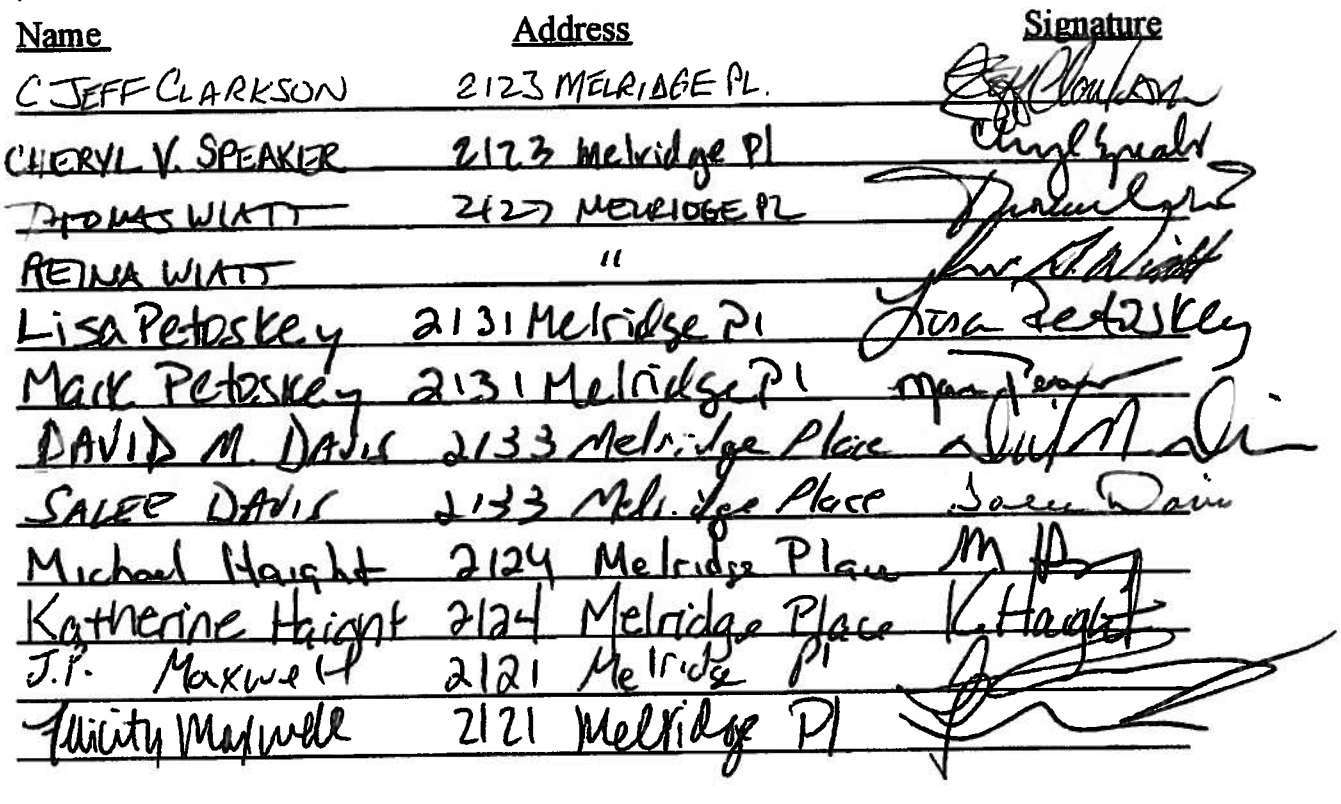 Name Address Signature
C JEFF CLARKSON 2123 MELRIDGE PL.
CHERYL V. SPEAKER 2123 Melridge Pl Cheryl Speaker
THOMAS WIATT 2127 MELRIDGE PL
RETNA WIATT " Wiatt
Lisa Petoskey 2131 Melridge Pl Lisa Petoskey
Mark Petoskey 2131 Melridge Pl
DAVID M. DAVIS 2133 Melridge Place
SALEE DAVIS 2133 Melridge Place Salee Davis
Michael Haight 2124 Melridge Place M H
Katherine Haight 2124 Melridge Place K. Haight
J.P. Maxwell 2121 Melridge Pl
Felicity Maxwell 2121 Melridge Pl